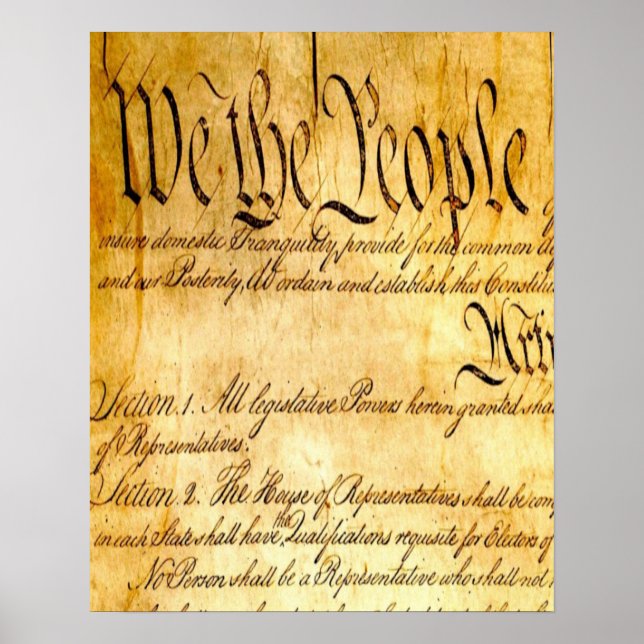 We the People
insure domestic Tranquility, provide for the common
and our Posterity, do ordain and establish this Constitu
Arti
Section. 1. All legislative Powers herein granted sha
of Representatives.
Section. 2. The House of Representatives shall be com
in each State shall have the Qualifications requisite for Electors of
No Person shall be a Representative who shall not